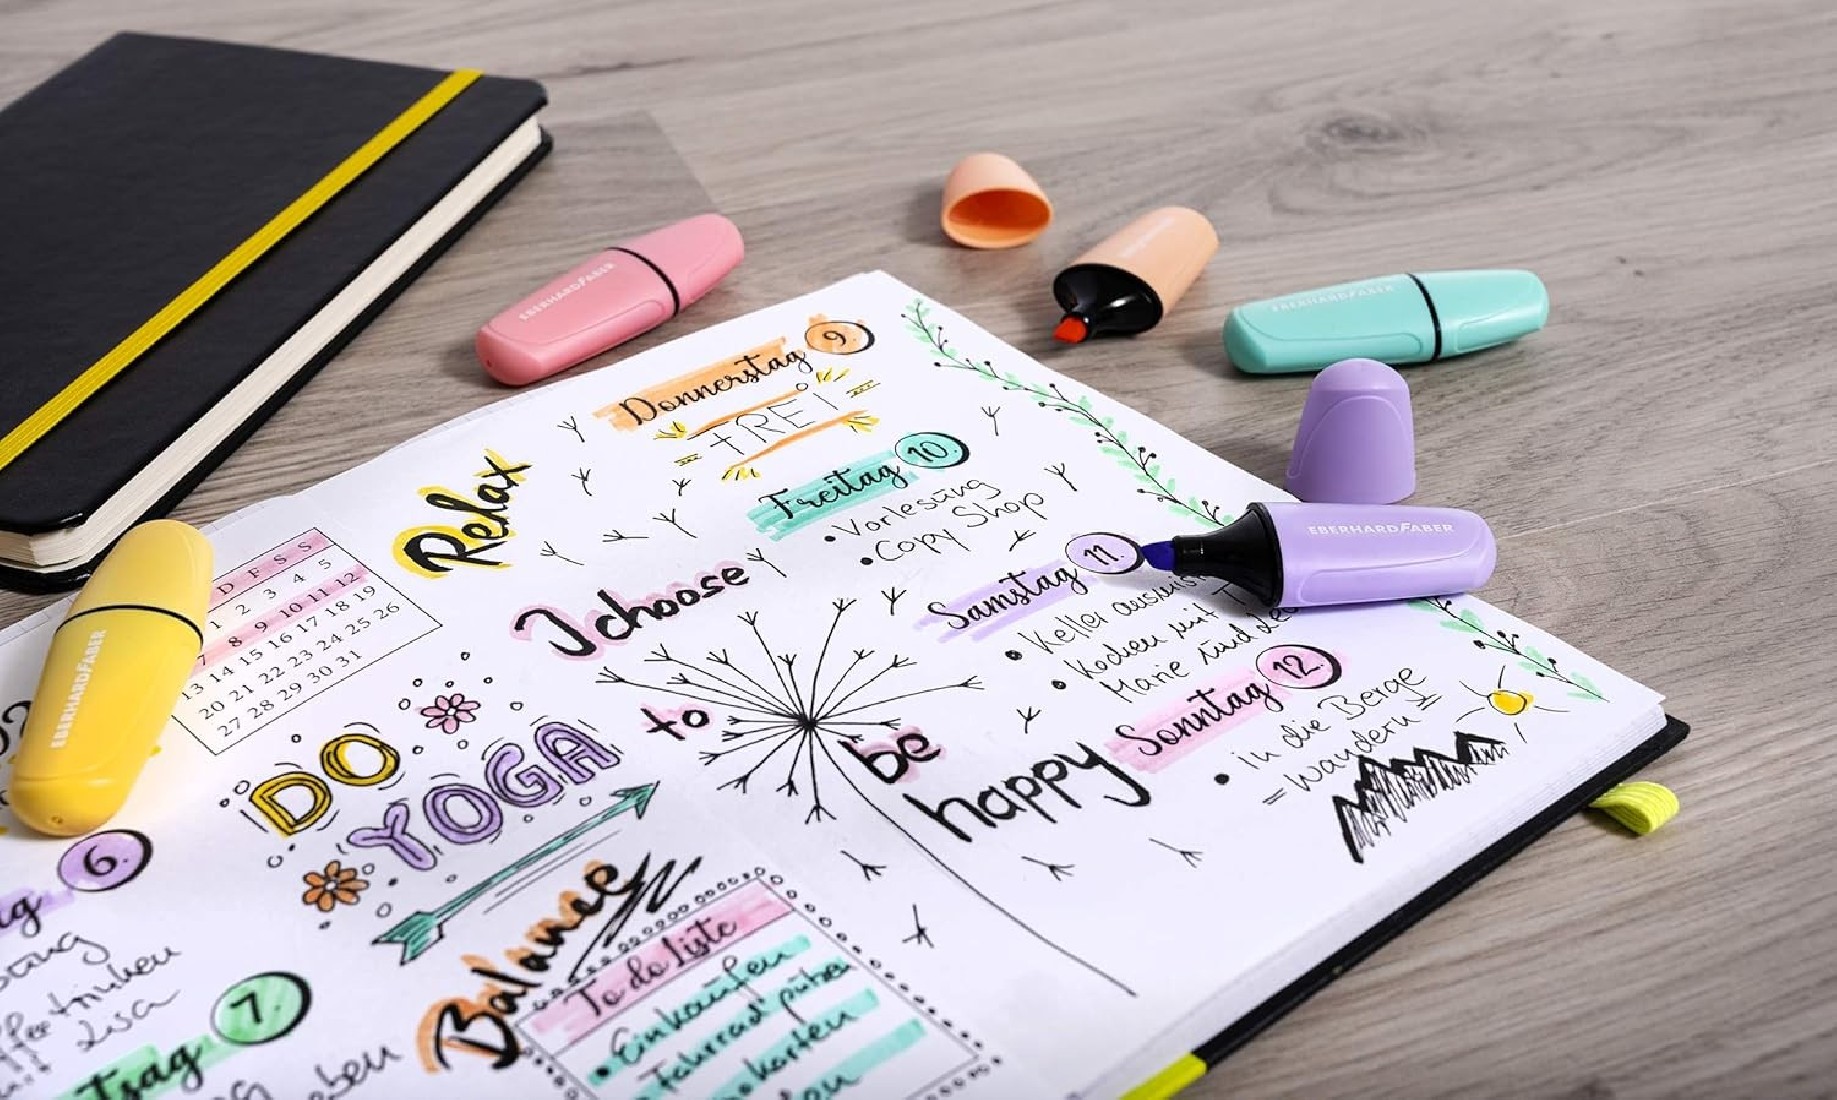 EBERHARDFABER
EBERHARDFABER
EBERHARDFABER
EBERHARDFABER
D F S S
1 2 3 4 5
7 8 9 10 11 12
13 14 15 16 17 18 19
20 21 22 23 24 25 26
27 28 29 30 31
Relax
I choose
to
be
happy
DO
YOGA
Balance
To do liste
• Einkaufen
Fahrrad putzen
karten
6.
trinken
Lisa
7.
Donnerstag 9.
FREI
Freitag 10.
• Vorlesung
• Copy Shop
Samstag 11.
• Keller
• Kochen mit
Marie und
Sonntag 12.
• in die Berge
= Wandern